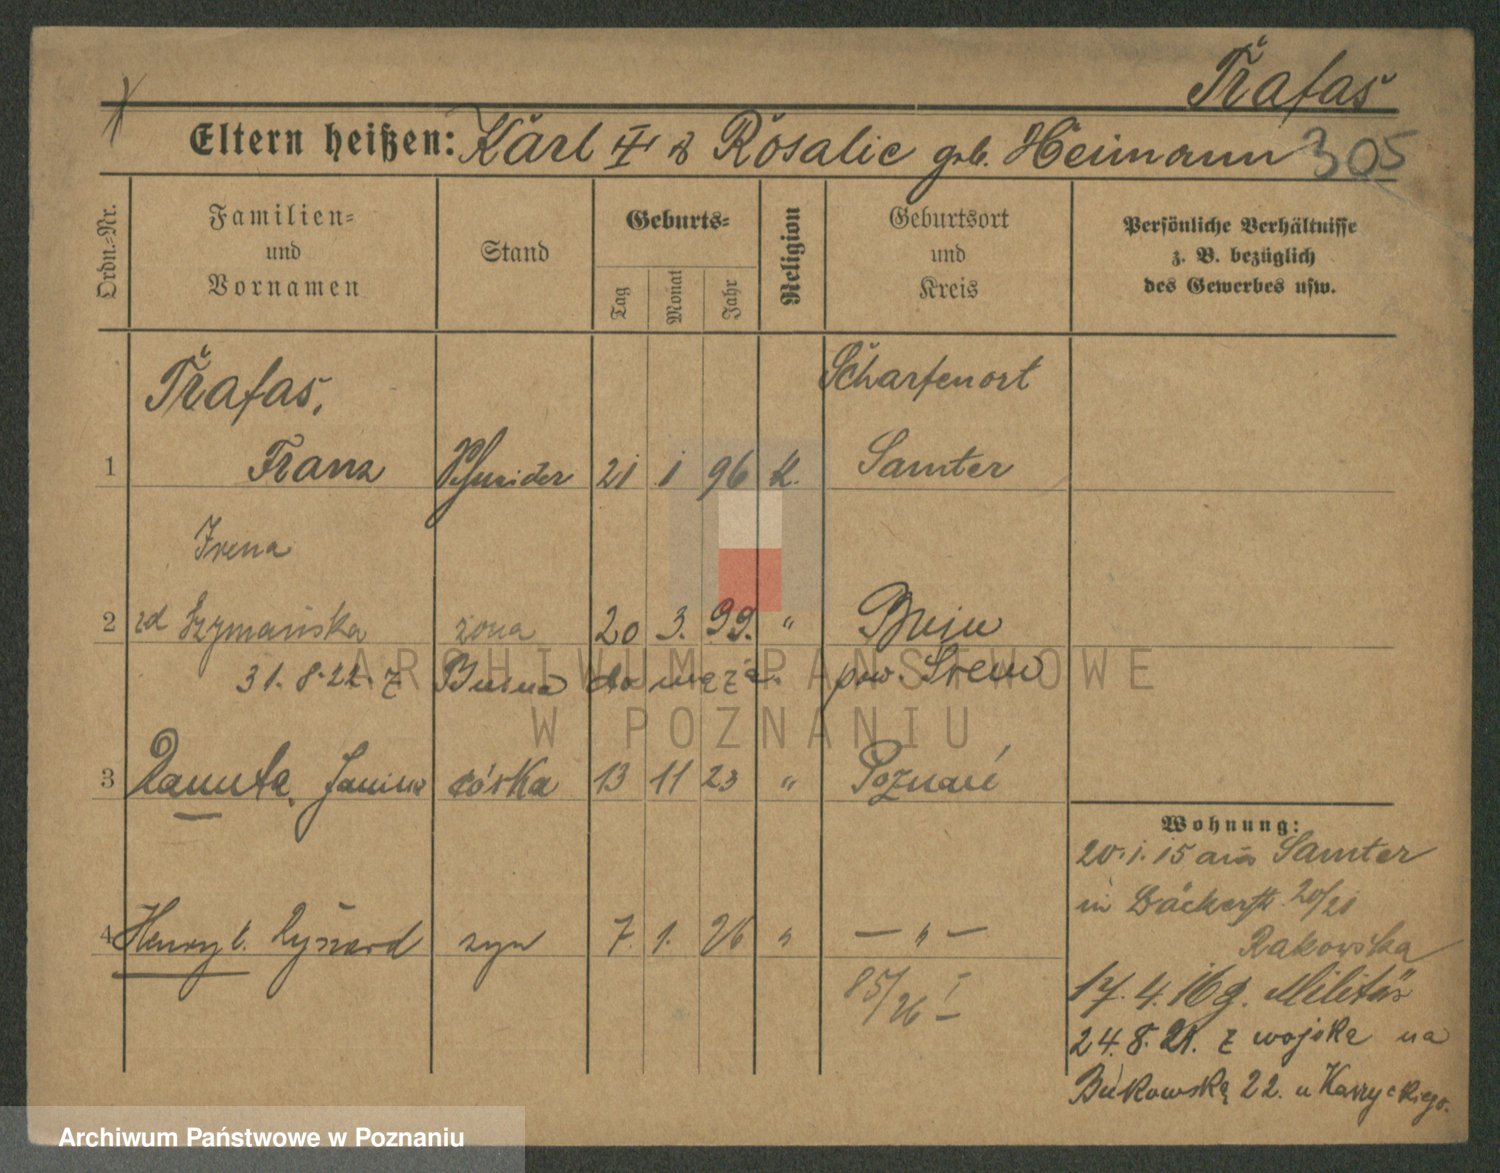 Trafas
Eltern heißen: Karl u Rosalie geb. Heimann 305
Ordn.-Nr.
Familien-
und
Vornamen
Stand
Geburts-
Tag
Monat
Jahr
Religion
Geburtsort
und
Kreis
Persönliche Verhältnisse
z. B. bezüglich
des Gewerbes usw.
Trafas, Scharfenort
1 Franz Schneider 21 1 96 k. Samter
Irena
2 zd Szymańska żona 20 3. 99. " Bnin
31. 8. 22. z Bnina do męża. pow. Śrem
3 Danuta Janina córka 13 11 23 " Poznań
Wohnung:
20. 1. 15 aus Samter
in Bäckerstr. 20/21
4 Henryk Ryszard syn 7. 1. 26 " — " —
Rakowska
85/26 I
17. 4. 16 g. Militär
24. 8. 21. z wojska na
Bukowską 22. u
ARCHIWUM PAŃSTWOWE
W POZNANIU
Archiwum Państwowe w Poznaniu